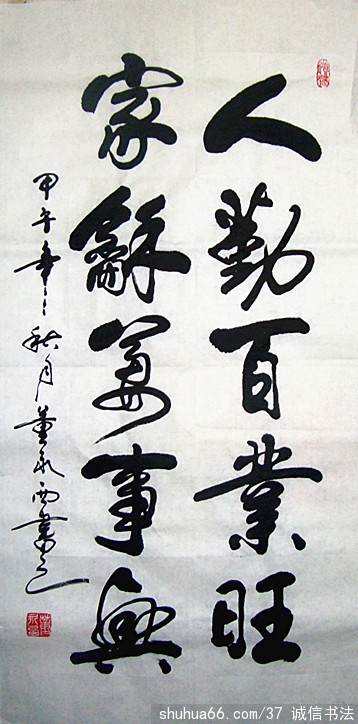 人勤百業旺
家龢萬事興
甲午年秋月董永西書之
shuhua66.com/37 诚信书法